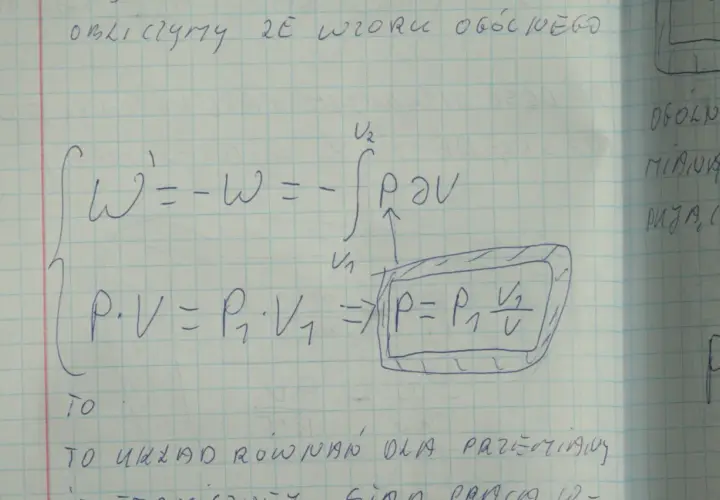 OBLICZYMY ZE WZORU OGÓLNEGO
W' = -W = - ∫ V1 V2 P ∂V
P·V = P1·V1 => P = P1 V1/V
TO
TO UKŁAD RÓWNAŃ DLA PRZEMIANY
OGÓLN
MIANA